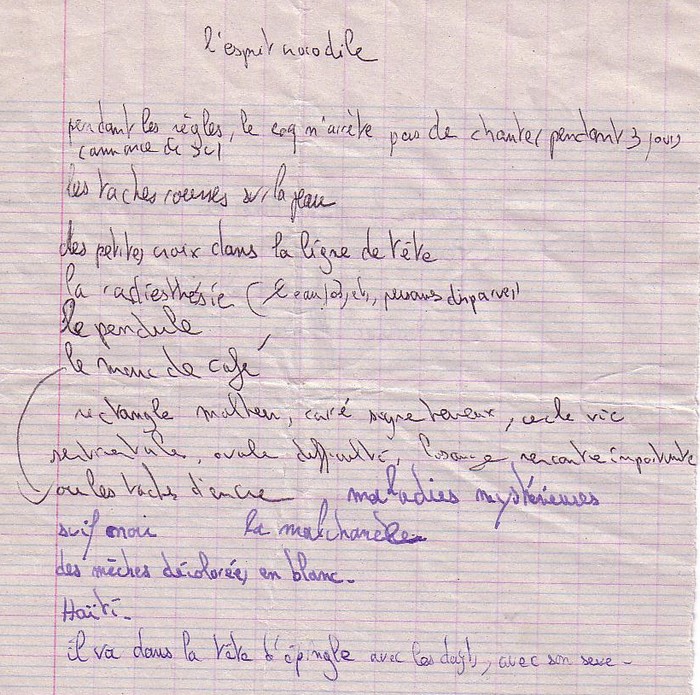 l'esprit crocodile
pendant les règles, le coq n'arrête pas de chanter pendant 3 jours
les taches rousses sur la peau
des petites croix dans la ligne de tête
la radiesthésie (l'eau, personnes disparues)
le pendule
le marc de café
rectangle malheur, carré signe heureux, cercle vie
sentimentale, ovale difficulté, losange rencontre importante
ou les taches d'encre maladies mystérieuses
la malchance
des mèches décolorées en blanc.
Haïti.
il va dans la tête d'épingle avec les doigts, avec son sexe.